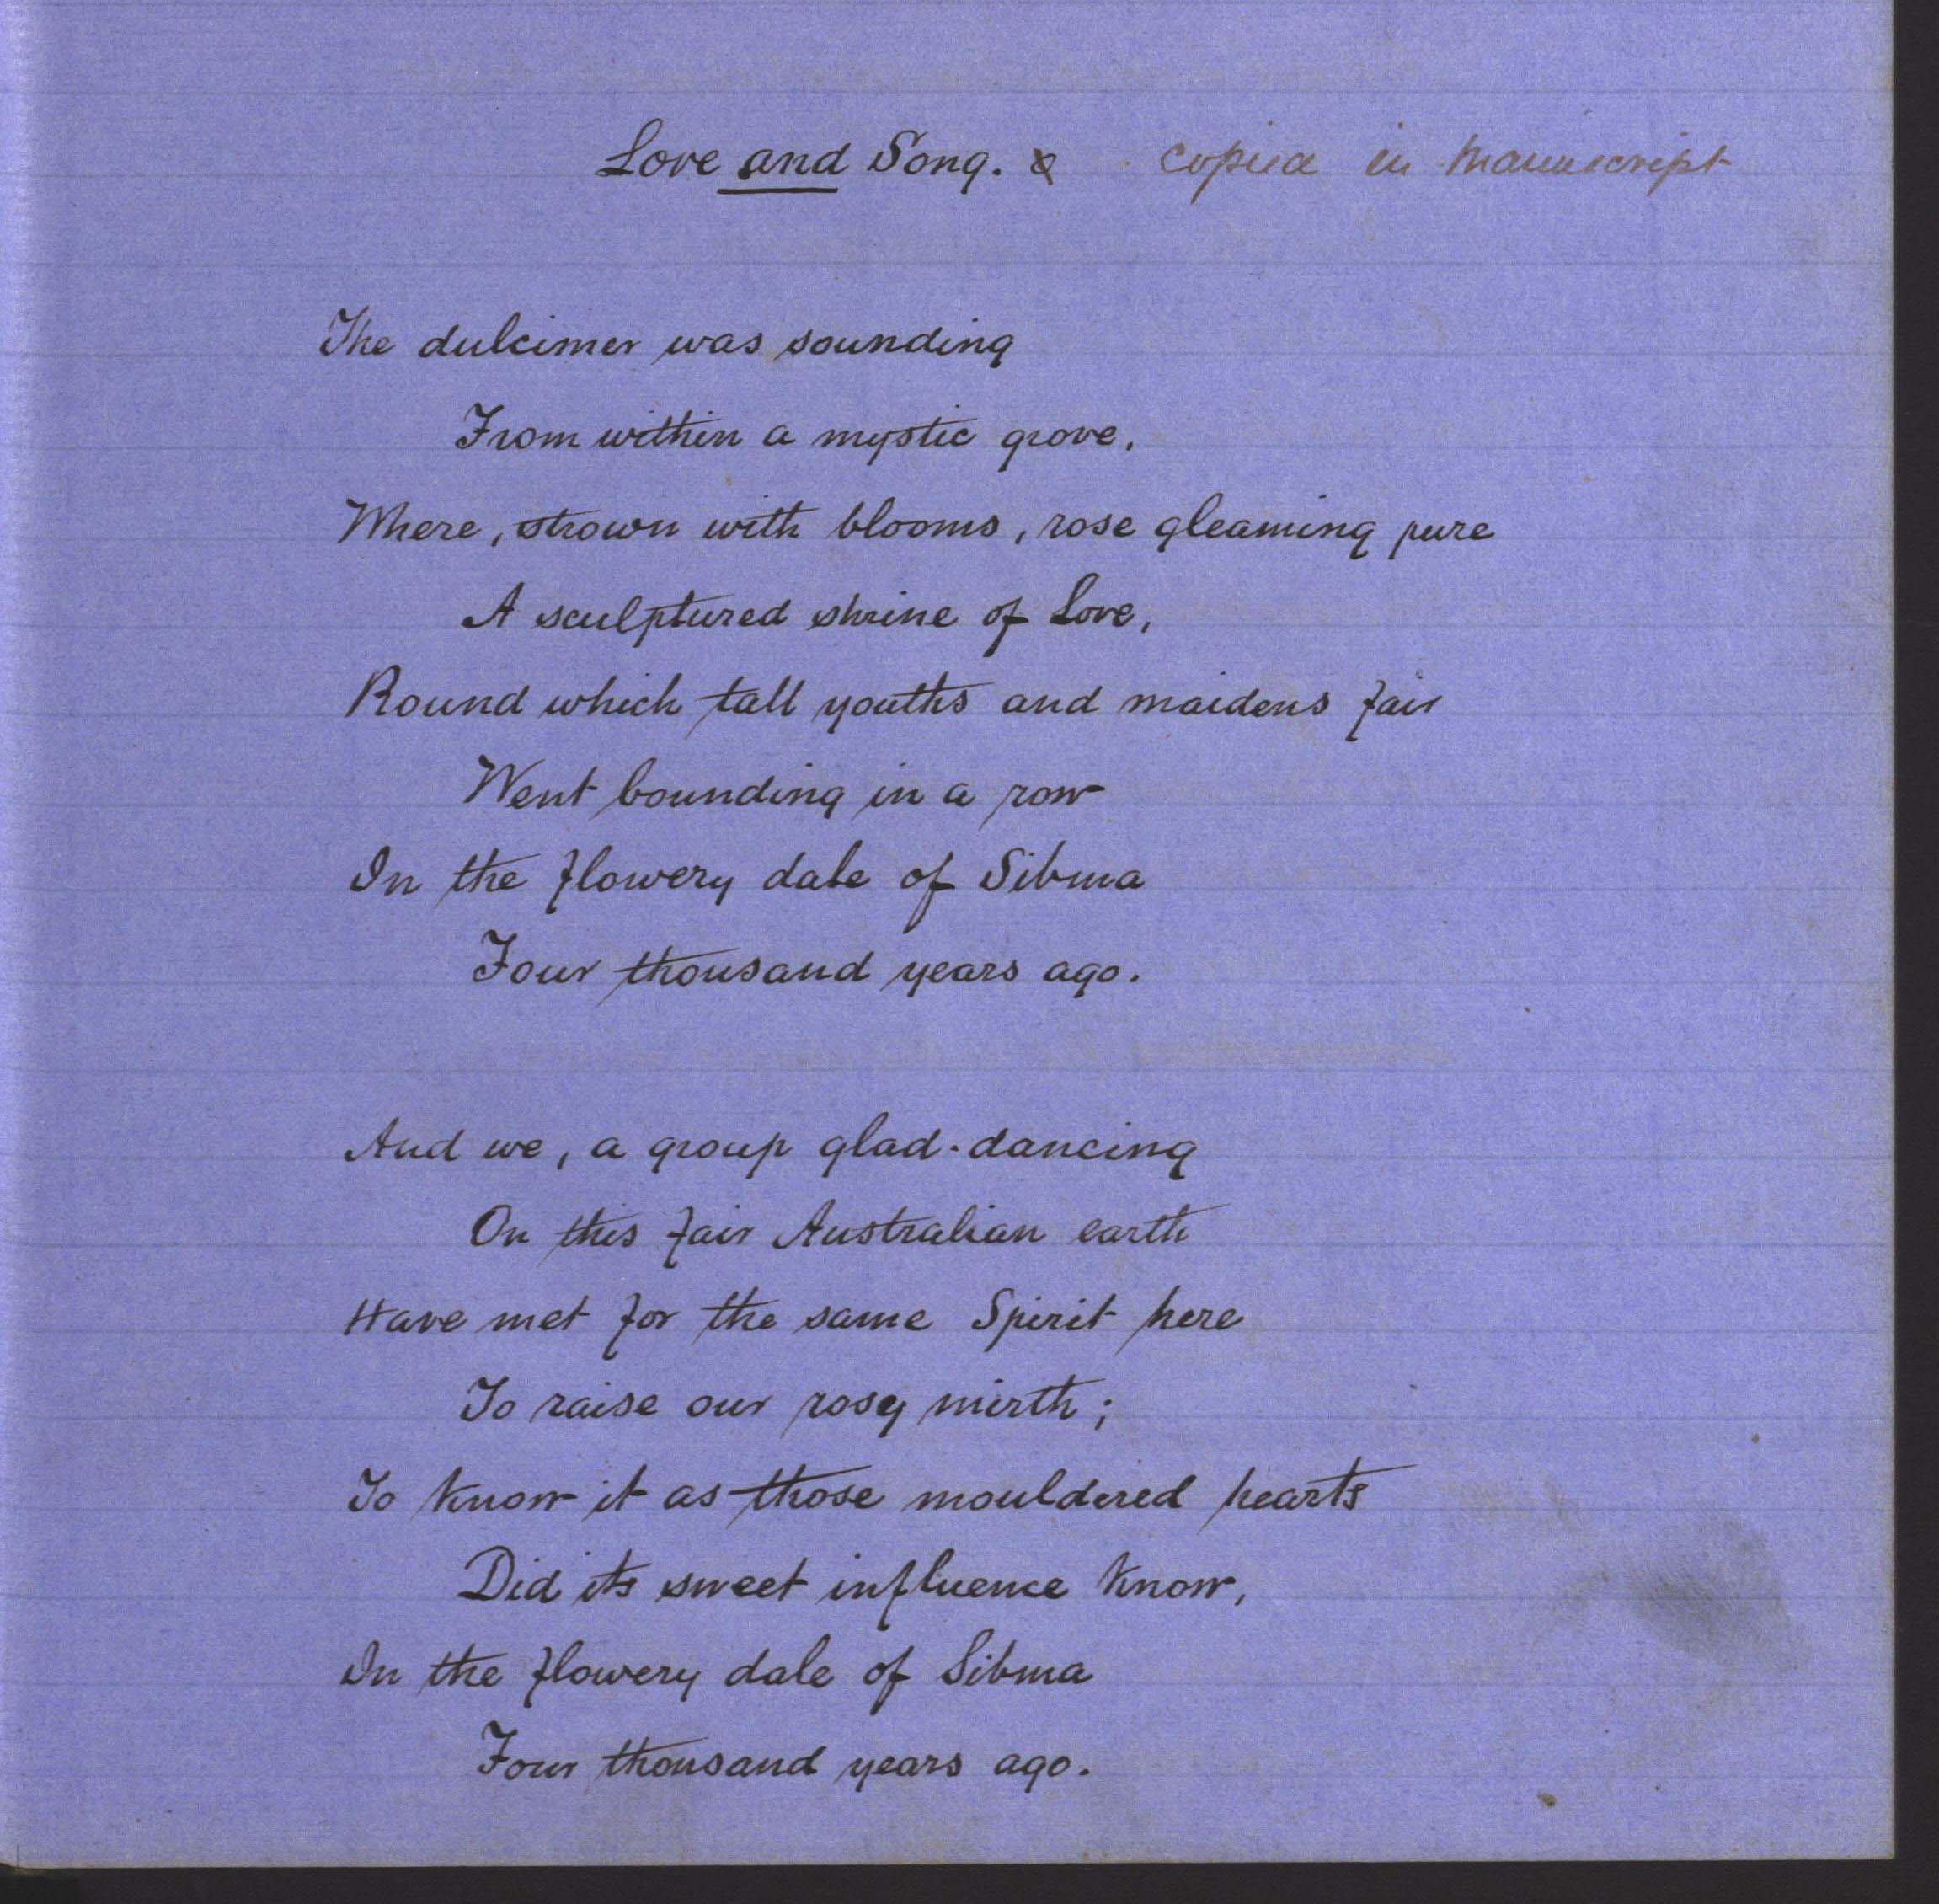 Love and Song. x copied in Manuscript
The dulcimer was sounding
From within a mystic grove,
Where, strown with blooms, rose gleaming pure
A sculptured shrine of Love,
Round which tall youths and maidens fair
Went bounding in a row
In the flowery dale of Sibma
Four thousand years ago.
And we, a group glad-dancing
On this fair Australian earth
Have met for the same Spirit here
To raise our rosy mirth;
To know it as those mouldered hearts
Did its sweet influence know,
In the flowery dale of Sibma
Four thousand years ago.